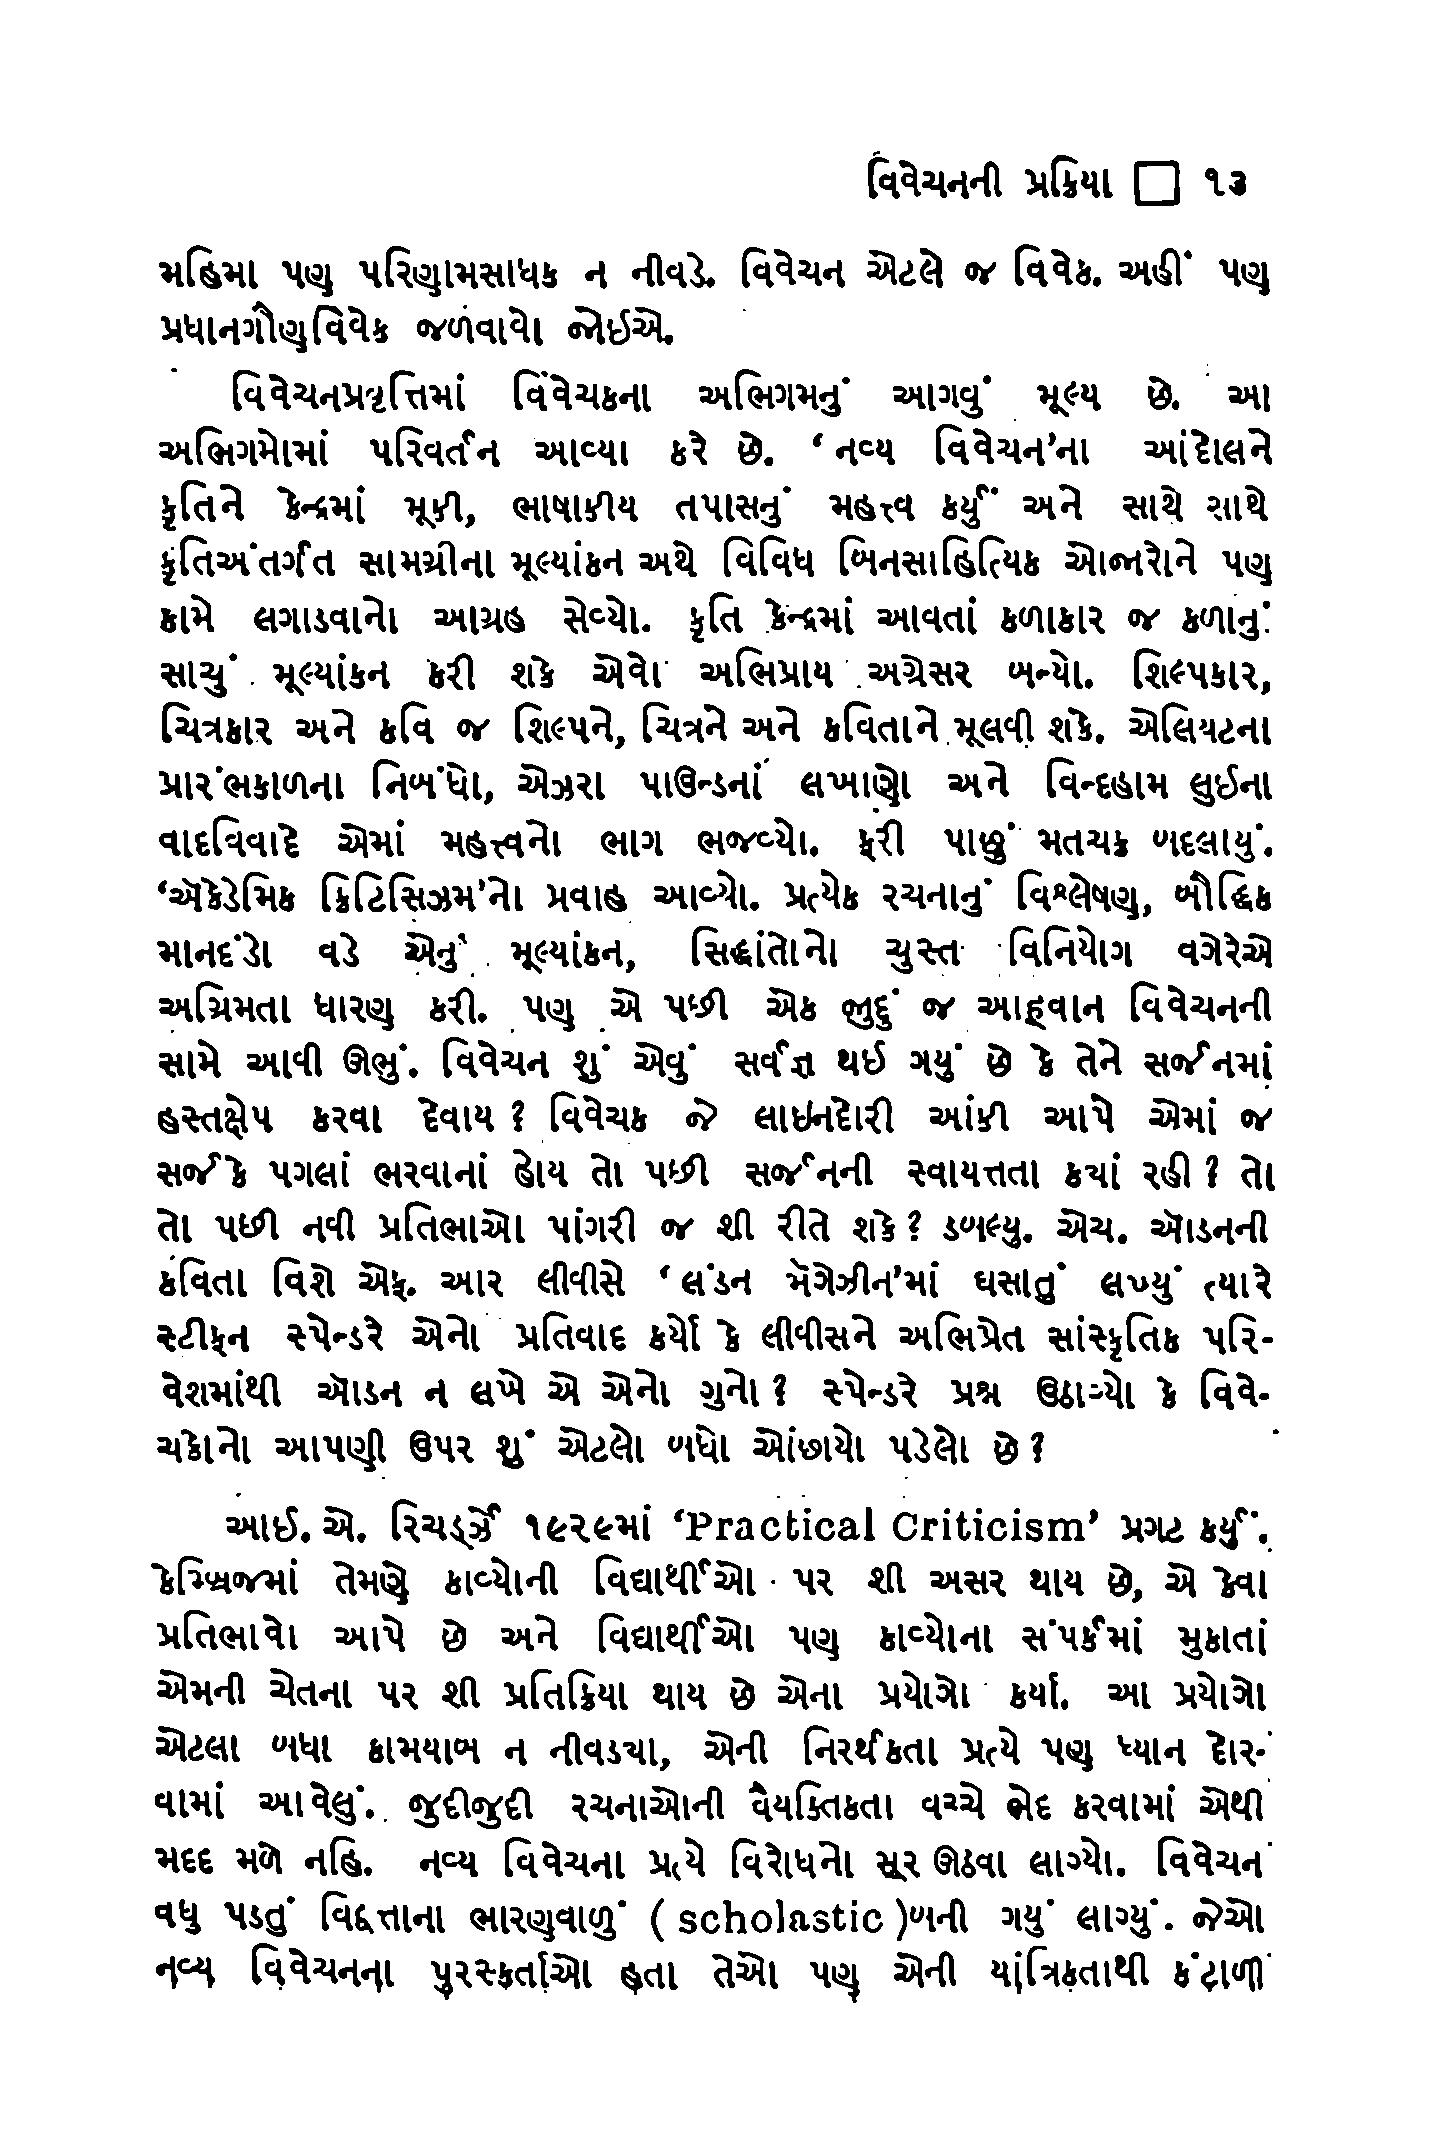 વિવેચનની પ્રક્રિયા □ ૧૩
મહિમા પણ પરિણામસાધક ન નીવડે. વિવેચન એટલે જ વિવેક. અહીં પણ
પ્રધાનગૌણવિવેક જળવાવો જોઈએ.
વિવેચનપ્રવૃત્તિમાં વિવેચકના અભિગમનું આગવું મૂલ્ય છે. આ
અભિગમોમાં પરિવર્તન આવ્યા કરે છે. ‘નવ્ય વિવેચન’ના આંદોલને
કૃતિને કેન્દ્રમાં મૂકી, ભાષાકીય તપાસનું મહત્ત્વ કર્યું અને સાથે સાથે
કૃતિઅંતર્ગત સામગ્રીના મૂલ્યાંકન અર્થે વિવિધ બિનસાહિત્યિક ઓજારોને પણ
કામે લગાડવાનો આગ્રહ સેવ્યો. કૃતિ કેન્દ્રમાં આવતાં કળાકાર જ કળાનું
સાચું મૂલ્યાંકન કરી શકે એવો અભિપ્રાય અગ્રેસર બન્યો. શિલ્પકાર,
ચિત્રકાર અને કવિ જ શિલ્પને, ચિત્રને અને કવિતાને મૂલવી શકે. એલિયટના
પ્રારંભકાળના નિબંધો, એઝરા પાઉન્ડનાં લખાણો અને વિન્દહામ લુઈના
વાદવિવાદે એમાં મહત્ત્વનો ભાગ ભજવ્યો. ફરી પાછું મતચક્ર બદલાયું.
‘ઍકેડેમિક ક્રિટિસિઝમ’નો પ્રવાહ આવ્યો. પ્રત્યેક રચનાનું વિશ્લેષણ, બૌદ્ધિક
માનદંડો વડે એનું મૂલ્યાંકન, સિદ્ધાંતોનો ચુસ્ત વિનિયોગ વગેરેએ
અગ્રિમતા ધારણ કરી. પણ એ પછી એક જુદું જ આહ્‌વાન વિવેચનની
સામે આવી ઊભું. વિવેચન શું એવું સર્વજ્ઞ થઈ ગયું છે કે તેને સર્જનમાં
હસ્તક્ષેપ કરવા દેવાય ? વિવેચક જે લાઇનદોરી આંકી આપે એમાં જ
સર્જકે પગલાં ભરવાનાં હોય તો પછી સર્જનની સ્વાયત્તતા ક્યાં રહી ? તો
તો પછી નવી પ્રતિભાઓ પાંગરી જ શી રીતે શકે ? ડબલ્યુ. એચ. ઑડનની
કવિતા વિશે એફ. આર લીવીસે ‘લંડન મૅગેઝીન’માં ઘસાતું લખ્યું ત્યારે
સ્ટીફન સ્પેન્ડરે એનો પ્રતિવાદ કર્યો કે લીવીસને અભિપ્રેત સાંસ્કૃતિક પરિ-
વેશમાંથી ઑડન ન લખે એ એનો ગુનો ? સ્પેન્ડરે પ્રશ્ન ઉઠાવ્યો કે વિવે-
ચકોનો આપણી ઉપર શું એટલો બધો ઓંછાયો પડેલો છે ?
આઈ. એ. રિચર્ડ્ઝે ૧૯૨૯માં ‘Practical Criticism’ પ્રગટ કર્યું.
કેમ્બ્રિજમાં તેમણે કાવ્યોની વિદ્યાર્થીઓ પર શી અસર થાય છે, એ કેવા
પ્રતિભાવો આપે છે અને વિદ્યાર્થીઓ પણ કાવ્યોના સંપર્કમાં મુકાતાં
એમની ચેતના પર શી પ્રતિક્રિયા થાય છે એના પ્રયોગો કર્યા. આ પ્રયોગો
એટલા બધા કામયાબ ન નીવડ્યા, એની નિરર્થકતા પ્રત્યે પણ ધ્યાન દોર-
વામાં આવેલું. જુદીજુદી રચનાઓની વૈયક્તિકતા વચ્ચે ભેદ કરવામાં એથી
મદદ મળે નહિ. નવ્ય વિવેચના પ્રત્યે વિરોધનો સૂર ઊઠવા લાગ્યો. વિવેચન
વધુ પડતું વિદ્વત્તાના ભારણવાળું ( scholastic )બની ગયું લાગ્યું. જેઓ
નવ્ય વિવેચનના પુરસ્કર્તાઓ હતા તેઓ પણ એની યાંત્રિકતાથી કંટાળી